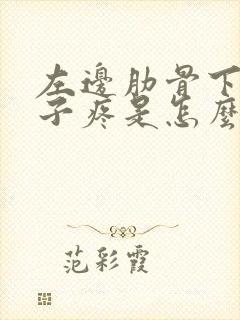 左邊肋骨下
子疼是怎麼
范彩霞